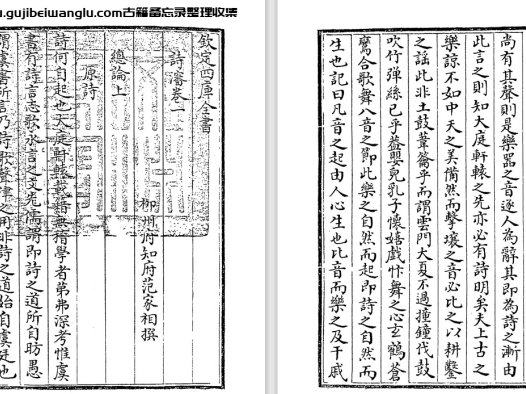 w.gujibeiwanglu.com古籍备忘录整理收集
欽定四庫全書
詩瀋卷一
柳州府知府范家相撰
總論上
原詩
詩何自起也大庭軒轅載籍無稽學者第弗深考惟虞
書有詩言志歌永言之文先儒謂即詩之道所自昉愚
謂虞書所言乃詩歌聲律之用非詩之道始自虞廷也
尚有其聲則是樂器之音逐人為辭其即為詩之漸由
此言之則知大庭軒轅之先亦必有詩明矣夫上古之
樂諒不如中天之美備然而擊壤之音必比之以耕鑿
之謡此非土鼓葦籥乎而謂雲門大夏不過撞鐘伐鼓
吹竹彈絲已乎蓋嬰兒乳子懷嬉戲忭舞之心玄鶴蒼
鸞合歌舞八音之節此樂之自然而起即詩之自然而
生也記曰凡音之起由人心生也比音而樂之及干戚